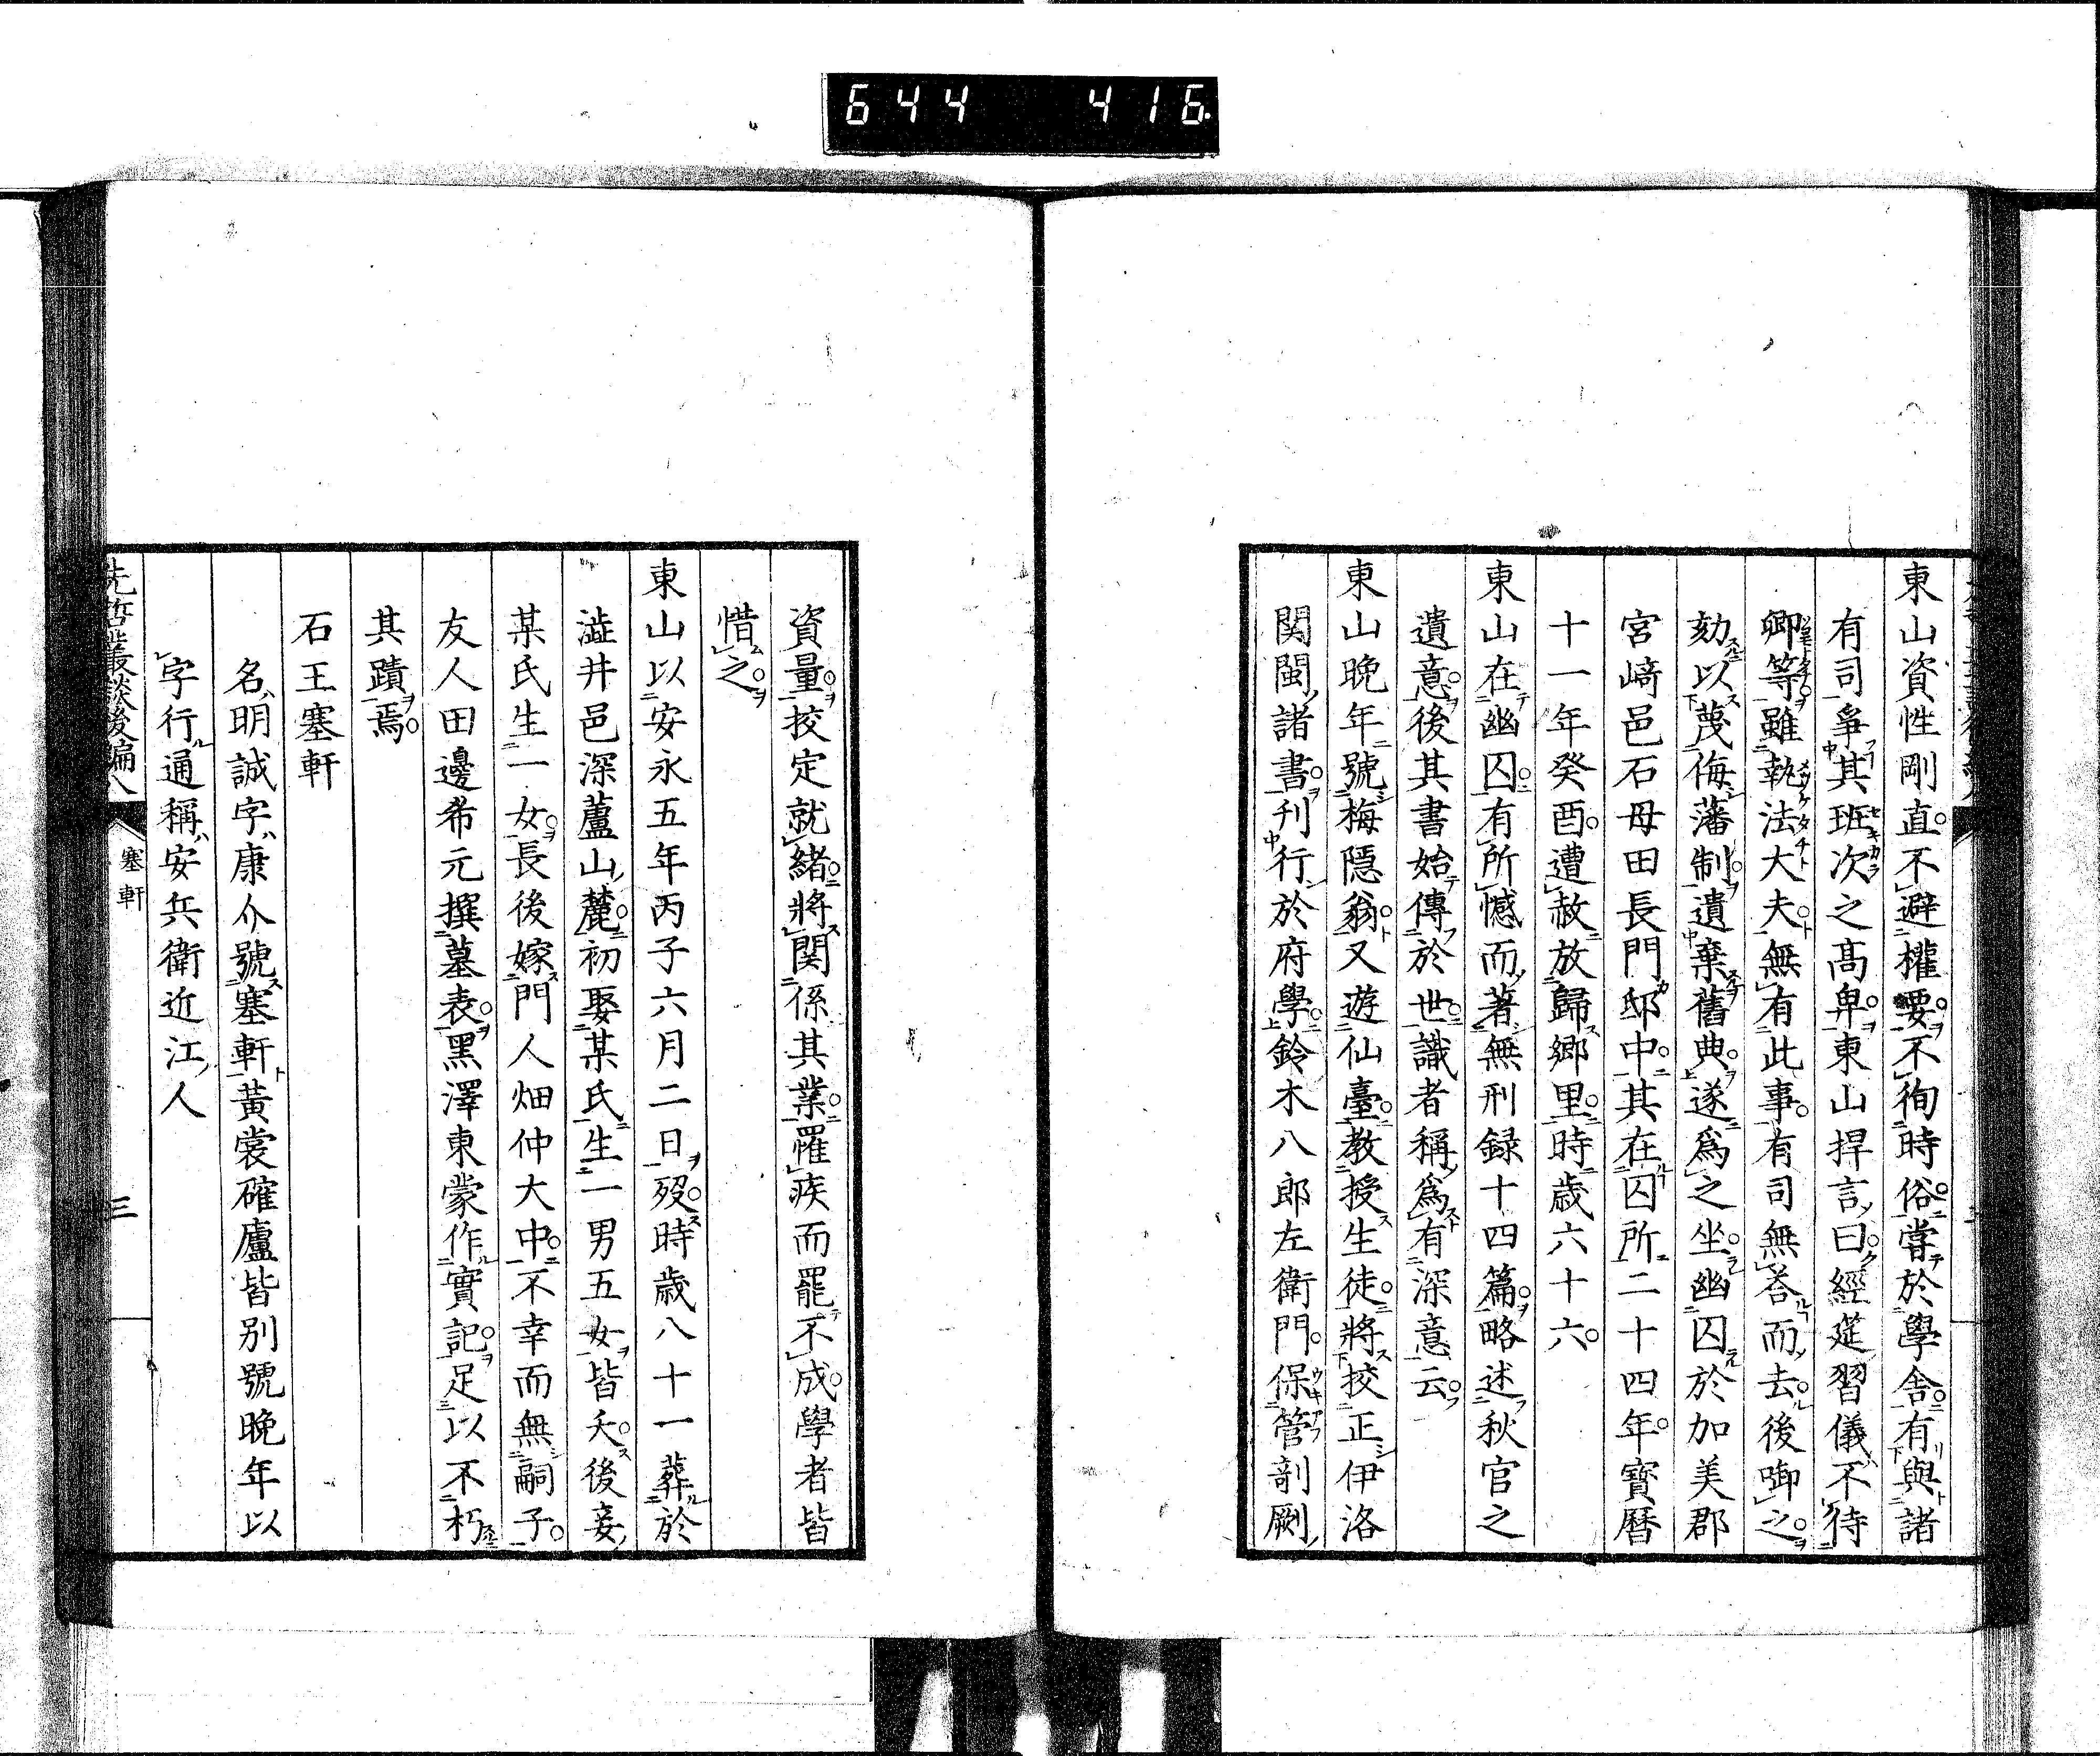 644 416
東山資性剛直不避權要不徇時俗嘗於學舍有與諸
有司爭其班次之髙卑東山捍言曰經筵習儀不待
卿等雖執法大夫無有此事有司無荅而去後啣之
劾以蔑侮藩制遺棄舊典遂爲之坐幽囚於加美郡
宮﨑邑石母田長門邸中其在囚所二十四年寳曆
十一年癸酉遭赦放歸郷里時歳六十六
東山在幽囚有所憾而著無刑録十四篇略述秋官之
遺意後其書始傳於世識者稱爲有深意云
東山晩年號梅隱翁又遊仙臺教授生徒將挍正伊洛
関閩諸書刊行於府學鈴木八郎左衛門保管剞劂
資量挍定就緒將関係其業罹疾而罷不成學者皆
惜之
東山以安永五年丙子六月二日歿時歳八十一葬於
澁井邑深蘆山麓初娶某氏生一男五女皆夭後妾
某氏生一女長後嫁門人畑仲大中不幸而無嗣子
友人田邊希元撰墓表黑澤東蒙作實記足以不朽
其蹟焉
石王塞軒
名明誠字康介號塞軒黃裳確廬皆别號晩年以
字行通稱安兵衛近江人
先哲叢談後編八
塞軒
三